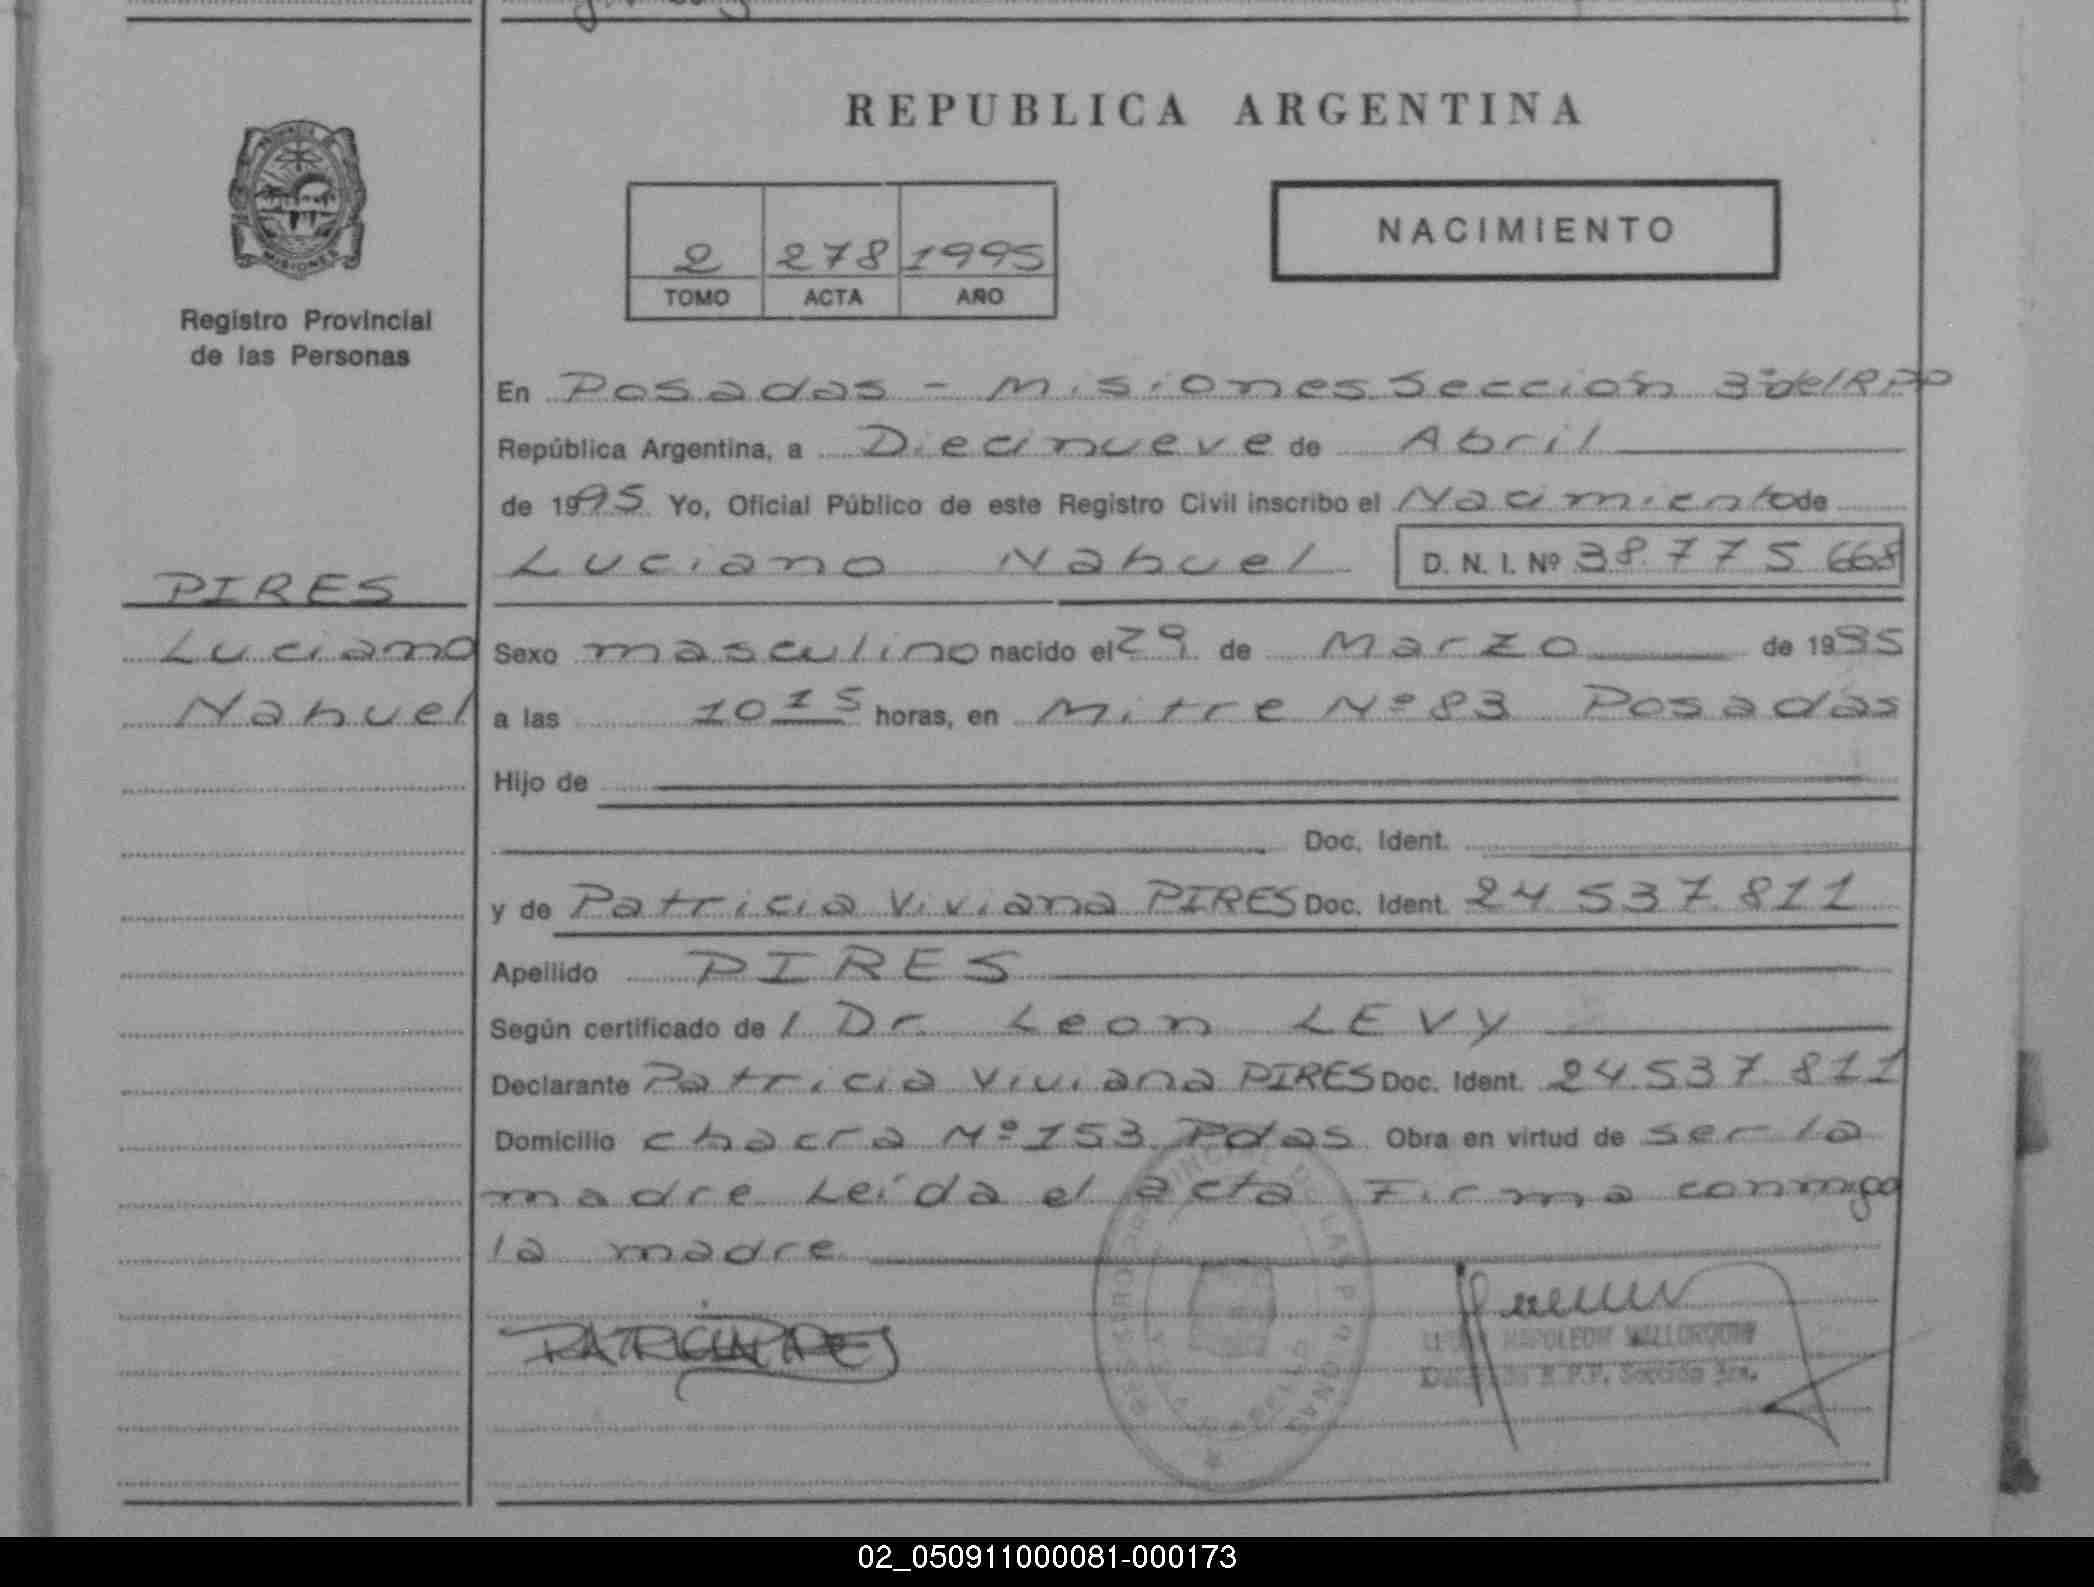 REPUBLICA ARGENTINA
MISIONES
Registro Provincial
de las Personas
2 278 1995
TOMO ACTA AÑO
NACIMIENTO
En Posadas - Misiones Sección 3ª del RPP
República Argentina, a Diecinueve de Abril
de 1995 Yo, Oficial Público de este Registro Civil inscribo el Nacimiento de
Luciano Nahuel D. N. I. Nº 38.775.668
PIRES
Luciano
Nahuel
Sexo masculino nacido el 29 de Marzo de 1995
a las 10 15 horas, en Mitre Nº 83 Posadas
Hijo de
Doc. Ident.
y de Patricia Viviana PIRES Doc. Ident. 24 537 811
Apellido PIRES
Según certificado de l Dr. Leon LEVY
Declarante Patricia Viviana PIRES Doc. Ident. 24.537.811
Domicilio chacra Nº 153 Pdas Obra en virtud de ser la
madre Leída el acta Firma conmigo
la madre
PATRICIA PIRES
NAPOLEON MALLORQUIN
R.P.P. Sección 3ra.
02_050911000081-000173